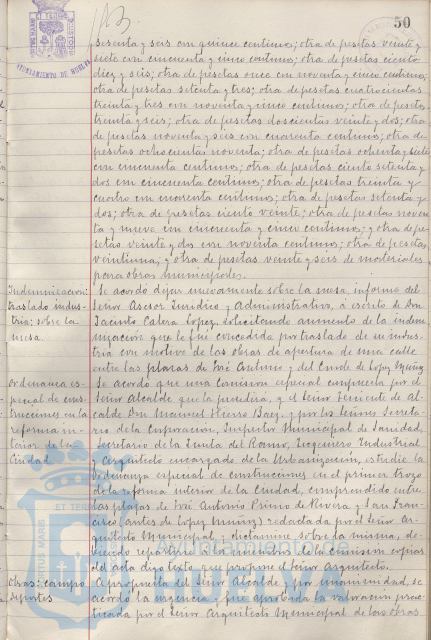 50
sesenta y seis con quince centimos; otra de pesetas veinte y
siete con cincuenta y cinco centimos; otra de pesetas ciento
diez y seis; otra de pesetas once con noventa y cinco centimos;
otra de pesetas setenta y tres; otra de pesetas cuatrocientas
treinta y tres con noventa y cinco centimos; otra de pesetas
treinta y seis; otra de pesetas doscientas veinte y dos; otra
de pesetas noventa y seis con cuarenta centimos; otra de
pesetas ochocientas noventa; otra de pesetas ochenta y siete
con cincuenta centimos; otra de pesetas ciento setenta y
dos con cincuenta centimos; otra de pesetas treinta y
cuatro con noventa centimos; otra de pesetas setenta y
dos; otra de pesetas ciento veinte; otra de pesetas noven-
ta y nueve con cincuenta y cinco centimos; y otra de pe-
setas veinte y dos con noventa centimos; otra de pesetas
veintiuna; y otra de pesetas veinte y seis de materiales
para obras municipales.
Indemnización:
traslado indus-
tria; sobre la
mesa.
Se acordó dejar nuevamente sobre la mesa, informe del
Señor Asesor Juridico y Administrativo, á escrito de Don
Jacinto Calera Lopez, solicitando aumento de la indem-
nización que le fué concedida por traslado de su indus-
tria con motivo de las obras de apertura de una calle
entre las plazas de José Antonio y del Conde de Lopez Muñoz.
Ordenanza es-
pecial de cons-
trucciones en la
reforma in-
terior de la
Ciudad
Se acordó que una Comision especial compuesta por el
Señor Alcalde que la presidirá, y el Señor Teniente de Al-
calde Don Manuel Hierro Baez, y por los Señores Secreta-
rio de la Corporación, Inspector Municipal de Sanidad,
Secretario de la Junta del Ramo, Ingeniero Industrial
y Arquitecto encargado de la Urbanización, estudie la
Ordenanza especial de construcciones en el primer trozo
de la reforma interior de la Ciudad, comprendido entre
las plazas de José Antonio Primo de Rivera y San Fran-
cisco (antes de Lopez Muñoz) redactada por el Señor Ar-
quitecto Municipal, y dictamine sobre la misma, de-
biendo repartirse a los miembros de la Comision copias
del acta digo texto que propone el Señor Arquitecto.
Otras: campo
deportes
A propuesta del Señor Alcalde y por unanimidad, se
acordó la urgencia, fué aprobada la valoración prac-
ticada por el Señor Arquitecto Municipal de las obras
AYUNTAMIENTO DE HUELVA
Ayuntamiento de